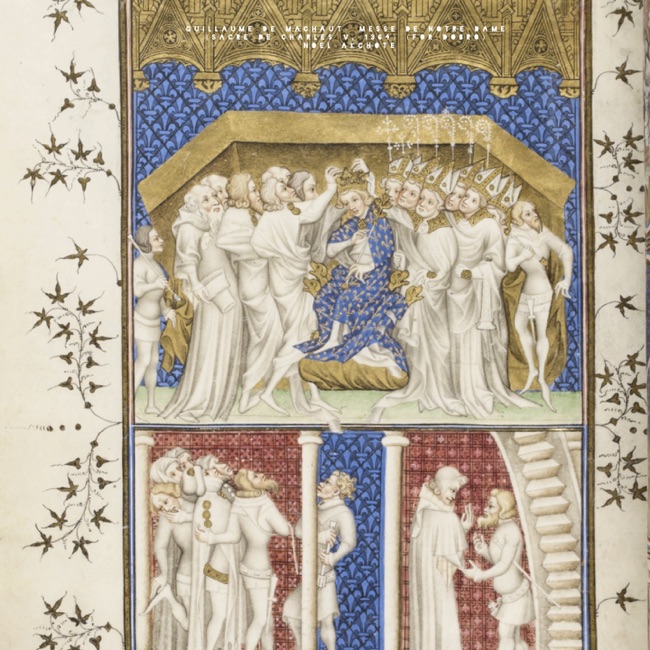 GUILLAUME DE MACHAUT, MESSE DE NOTRE DAME
(SACRE DE CHARLES V, 1364) (FOR DODRO)
NOËL AKCHOTÉ